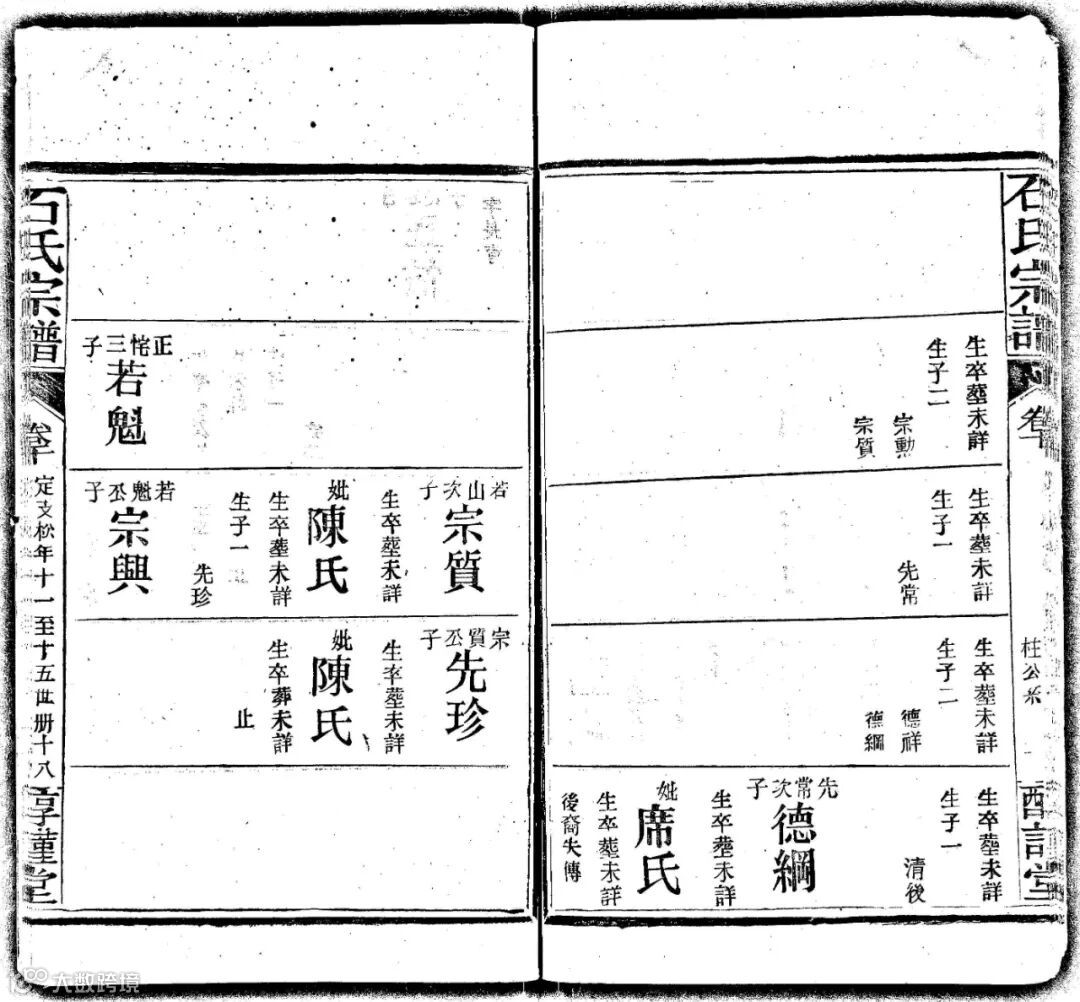 石氏宗譜
卷十
柱公系
生卒塟未詳
生子二
宗勳
宗質
生卒塟未詳
生子一
先常
生卒塟未詳
生子二
德祥
德綱
生卒塟未詳
生子一
清後
先常次子
德綱
生卒塟未詳
妣
席氏
生卒塟未詳
後裔失傳
正恠三子
若魁
若山次子
宗質
生卒塟未詳
妣
陳氏
生卒塟未詳
生子一
先珍
若魁丕子
宗興
宗質丕子
先珍
生卒塟未詳
妣
陳氏
生卒葬未詳
止
石氏宗譜
卷十
定支松年十一至十五世册十八
大数跨境